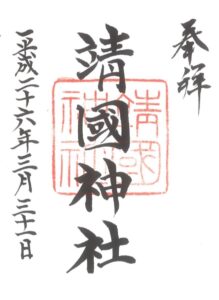 奉拝
靖國神社
平成二十六年三月三十一日
靖國神社